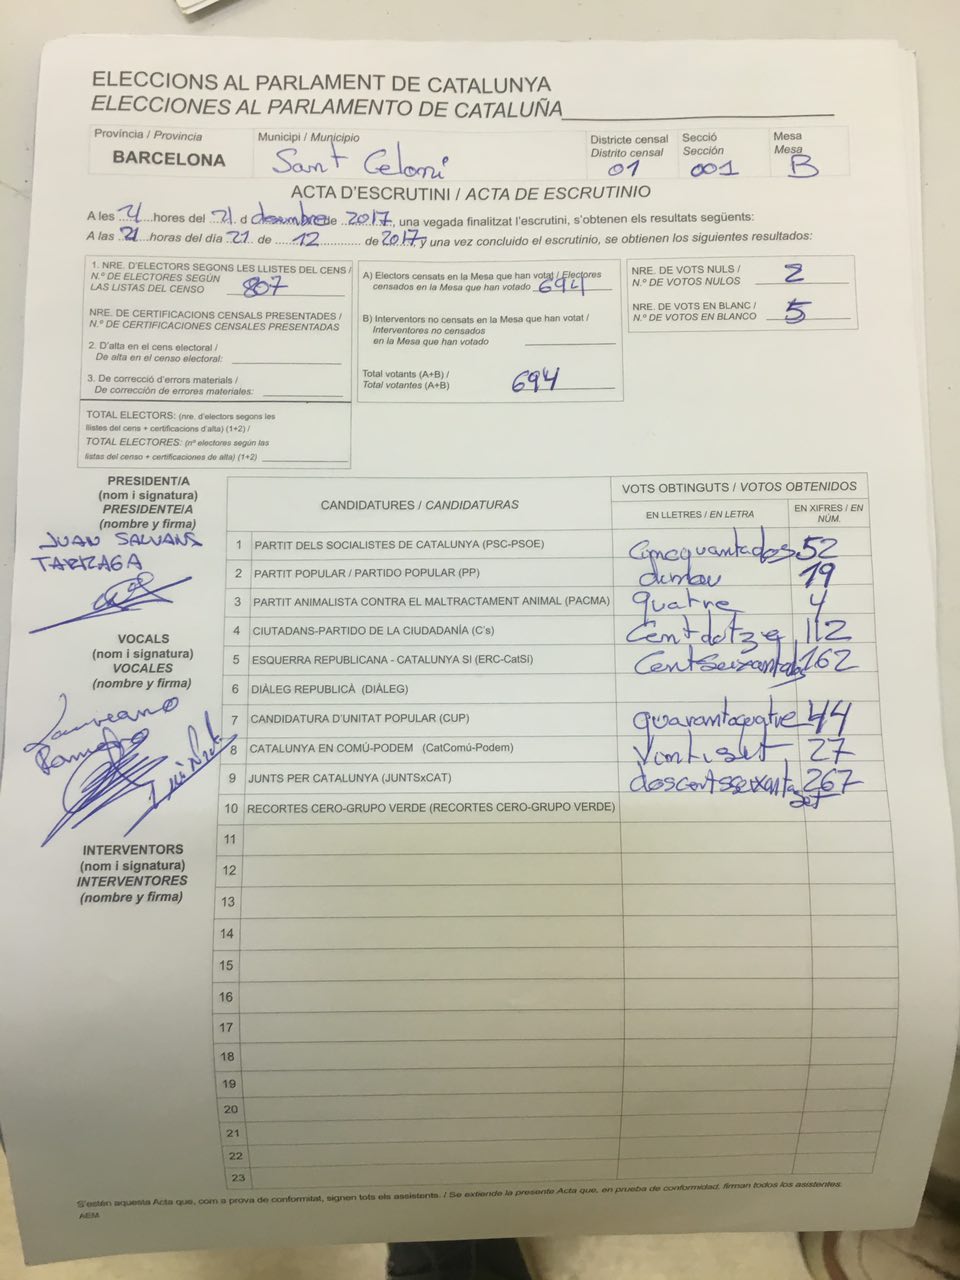 ELECCIONS AL PARLAMENT DE CATALUNYA
ELECCIONES AL PARLAMENTO DE CATALUÑA
Província / Provincia
BARCELONA
Municipi / Municipio
Sant Celoni
Districte censal
Distrito censal
01
Secció
Sección
001
Mesa
Mesa
B
ACTA D'ESCRUTINI / ACTA DE ESCRUTINIO
A les 21 hores del 21 d desembre de 2017, una vegada finalitzat l'escrutini, s'obtenen els resultats següents:
A las 21 horas del día 21 de 12 de 2017 y una vez concluido el escrutinio, se obtienen los siguientes resultados:
1. NRE. D'ELECTORS SEGONS LES LLISTES DEL CENS /
N.º DE ELECTORES SEGÚN
LAS LISTAS DEL CENSO 807
NRE. DE CERTIFICACIONS CENSALS PRESENTADES /
N.º DE CERTIFICACIONES CENSALES PRESENTADAS
2. D'alta en el cens electoral /
De alta en el censo electoral:
3. De correcció d'errors materials /
De corrección de errores materiales:
TOTAL ELECTORS: (nre. d'electors segons les
llistes del cens + certificacions d'alta) (1+2) /
TOTAL ELECTORES: (nº electores según las
listas del censo + certificaciones de alta) (1+2)
A) Electors censats en la Mesa que han votat / Electores
censados en la Mesa que han votado 694
B) Interventors no censats en la Mesa que han votat /
Interventores no censados
en la Mesa que han votado
Total votants (A+B) /
Total votantes (A+B) 694
NRE. DE VOTS NULS /
N.º DE VOTOS NULOS 2
NRE. DE VOTS EN BLANC /
N.º DE VOTOS EN BLANCO 5
PRESIDENT/A
(nom i signatura)
PRESIDENTE/A
(nombre y firma)
JUAN SALVANS
TARRAGA
VOCALS
(nom i signatura)
VOCALES
(nombre y firma)
Laureano
INTERVENTORS
(nom i signatura)
INTERVENTORES
(nombre y firma)
CANDIDATURES / CANDIDATURAS
VOTS OBTINGUTS / VOTOS OBTENIDOS
EN LLETRES / EN LETRA
EN XIFRES / EN NÚM.
1 PARTIT DELS SOCIALISTES DE CATALUNYA (PSC-PSOE) Cincquantados 52
2 PARTIT POPULAR / PARTIDO POPULAR (PP) dinou 19
3 PARTIT ANIMALISTA CONTRA EL MALTRACTAMENT ANIMAL (PACMA) quatre 4
4 CIUTADANS-PARTIDO DE LA CIUDADANÍA (C's) Cent dotze 112
5 ESQUERRA REPUBLICANA - CATALUNYA SÍ (ERC-CatSí) Centseixantados 162
6 DIÀLEG REPUBLICÀ (DIÀLEG)
7 CANDIDATURA D'UNITAT POPULAR (CUP) quarantaquatre 44
8 CATALUNYA EN COMÚ-PODEM (CatComú-Podem) Vintiset 27
9 JUNTS PER CATALUNYA (JUNTSxCAT) doscentsseixanta set 267
10 RECORTES CERO-GRUPO VERDE (RECORTES CERO-GRUPO VERDE)
11
12
13
14
15
16
17
18
19
20
21
22
23
S'estén aquesta Acta que, com a prova de conformitat, signen tots els assistents. / Se extiende la presente Acta que, en prueba de conformidad, firman todos los asistentes.
AEM